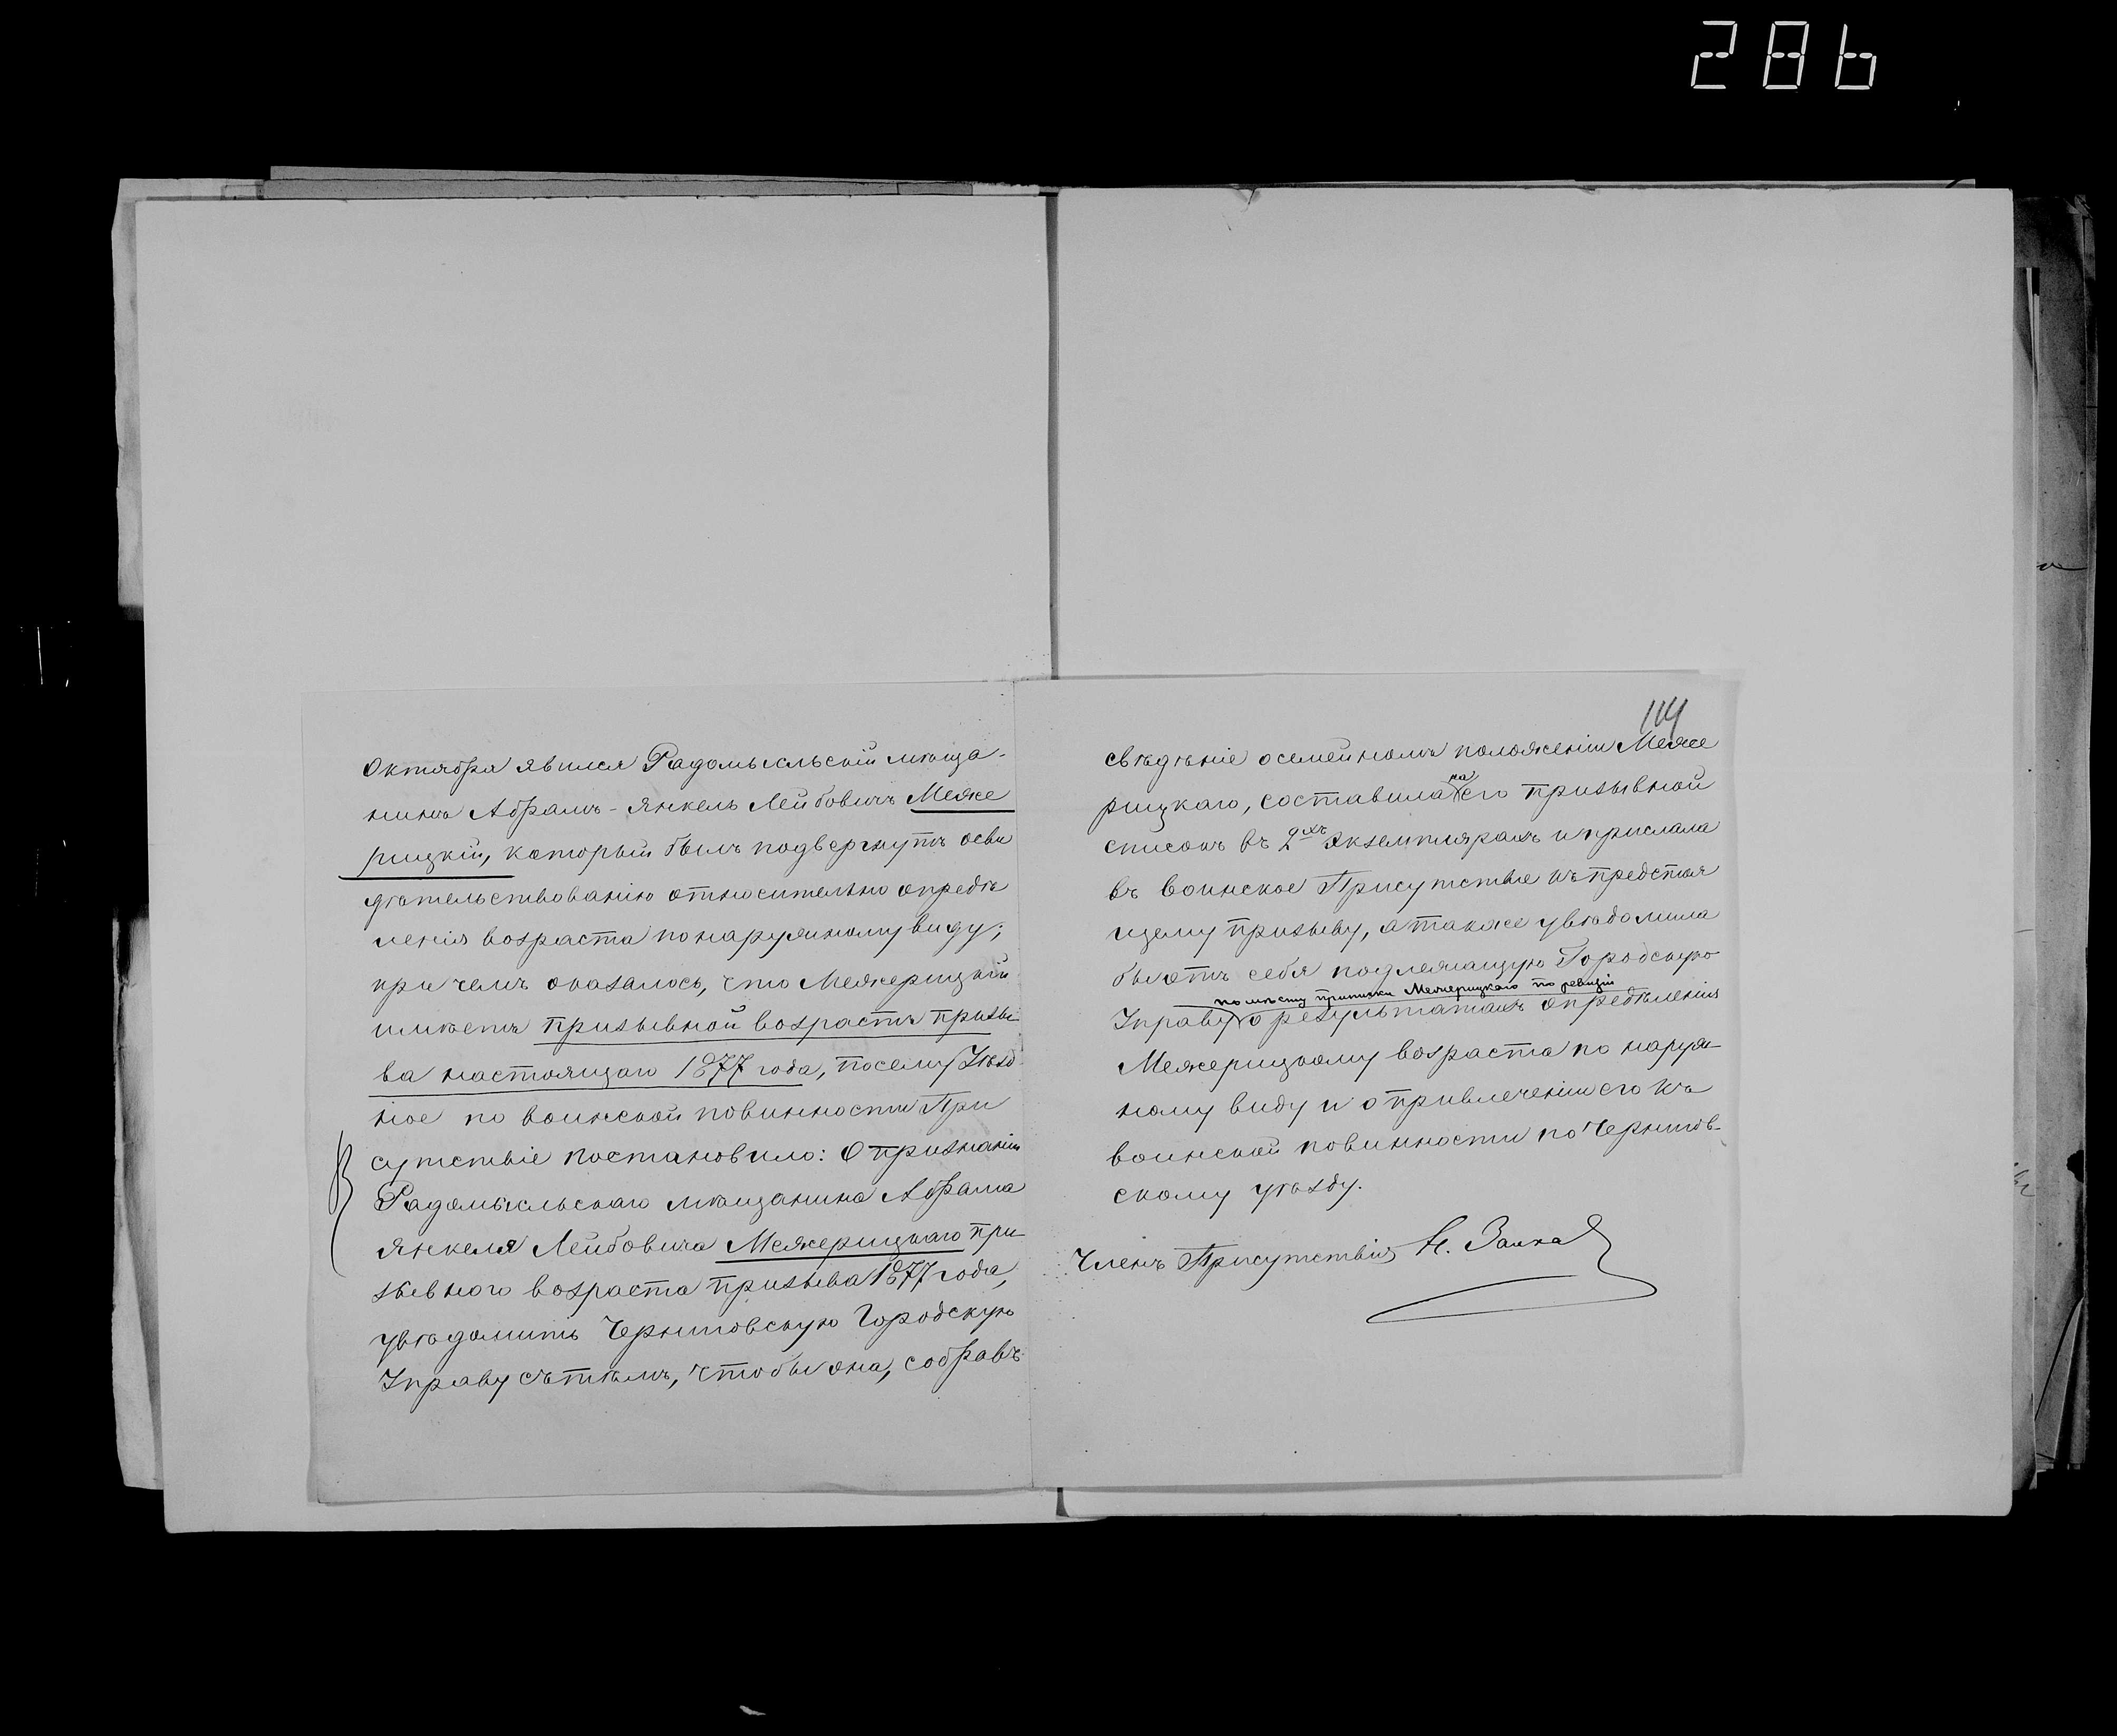 286
Октября явился Радомысльскій мѣща-
нинъ Абрамъ-Янкель Лейбовичъ Меже
рицкій, который былъ подвергнутъ осви
дѣтельствованію относительно опредѣ
ленія возраста по наружному виду;
при чемъ оказалось, что Межерицкій
имѣетъ призывной возрастъ призы-
ва настоящаго 1877 года, посему Уѣзд
ное по воинской повинности При
сутствіе постановило: О признаніи
Радомысльскаго мѣщанина Абрама
Янкеля Лейбовича Межерицкаго при-
зывного возраста призыва 1877 года,
увѣдомить Черниговскую Городскую
Управу съ тѣмъ, чтобы она, собравъ
114
свѣдѣніе о семейномъ положеніи Меже
рицкаго, составила на его призывной
списокъ въ 2хъ экземплярахъ и прислала
въ воинское Присутствіе къ предстоя
щему призыву, а также увѣдомила
бы отъ себя подлежащую Городскую
по мѣсту приписки Межерицкаго по ревизіи
Управу о результатахъ опредѣленія
Межерицкому возраста по наруж-
ному виду и о привлеченіи его къ
воинской повинности по Чернигов-
скому уѣзду.
Членъ Присутствія Н. Заика